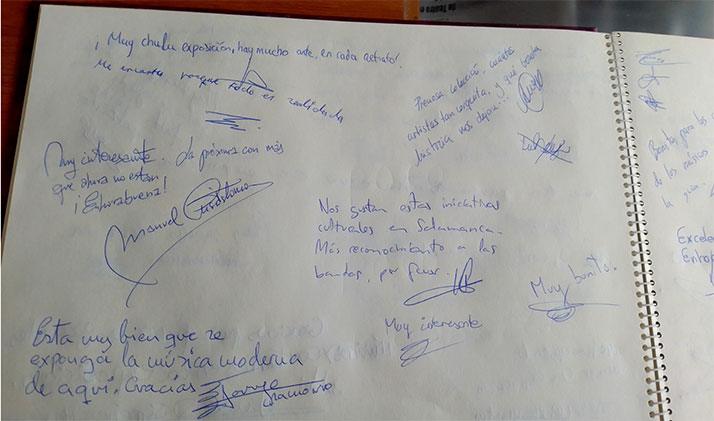 ¡Muy chula exposición, hay mucho arte, en cada retrato!
Me encanta porque todo es realidad
Muy interesante. La próxima con más
que ahora no están
¡Enhorabuena!
Manuel
Esta muy bien que se
exponga la música moderna
de aquí. Gracias
Jorge
Preciosa colección, cuantos
artistas tan cerquita, y que bonita
historia nos dejan...
Nos gustan estas iniciativas
culturales en Salamanca.
Más reconocimiento a las
bandas, por favor.
Muy bonito.
Muy interesante
Bonita para los
de los músicos
la guía.
de Teatro e